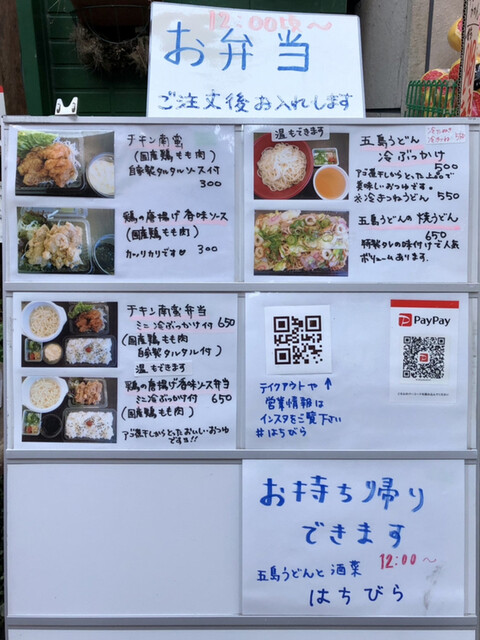 12:00〜
お弁当
ご注文後お入れします
チキン南蛮
(国産鶏もも肉)
自家製タルタルソース付
300
鶏の唐揚げ香味ソース
(国産鶏もも肉)
カリカリです♡ 300
温もできます
五島うどん
冷ぶっかけ
500
アゴ煮干しからとった上品で
美味しいおつゆです。
※冷きつねうどん 550
五島うどんの焼うどん
650
特製タレの味付けで人気
ボリュームあります。
チキン南蛮弁当
ミニ冷ぶっかけ付 650
(国産鶏もも肉
自家製タルタル付)
温もできます
鶏の唐揚げ香味ソース弁当
ミニ冷ぶっかけ付 650
(国産鶏もも肉)
アゴ煮干しからとったおいしいおつゆ
です!!
テイクアウトや ↑
営業情報は
インスタをご覧下さい
#はちびら
PayPay
お持ち帰り
できます
12:00〜
五島うどんと酒菜
はちびら